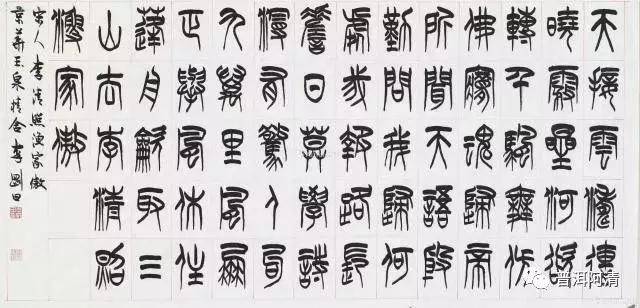 天接雲濤連
曉霧星河欲
轉千帆舞仿
佛夢魂歸帝
所聞天語殷
勤問我歸何
處我報路長
嗟日暮學詩
謾有驚人句
九萬里風鵬
正舉風休住
蓬舟吹取三
山去李清照
漁家傲
宋人李清照漁家傲
京華玉泉情舍書
普洱阿清